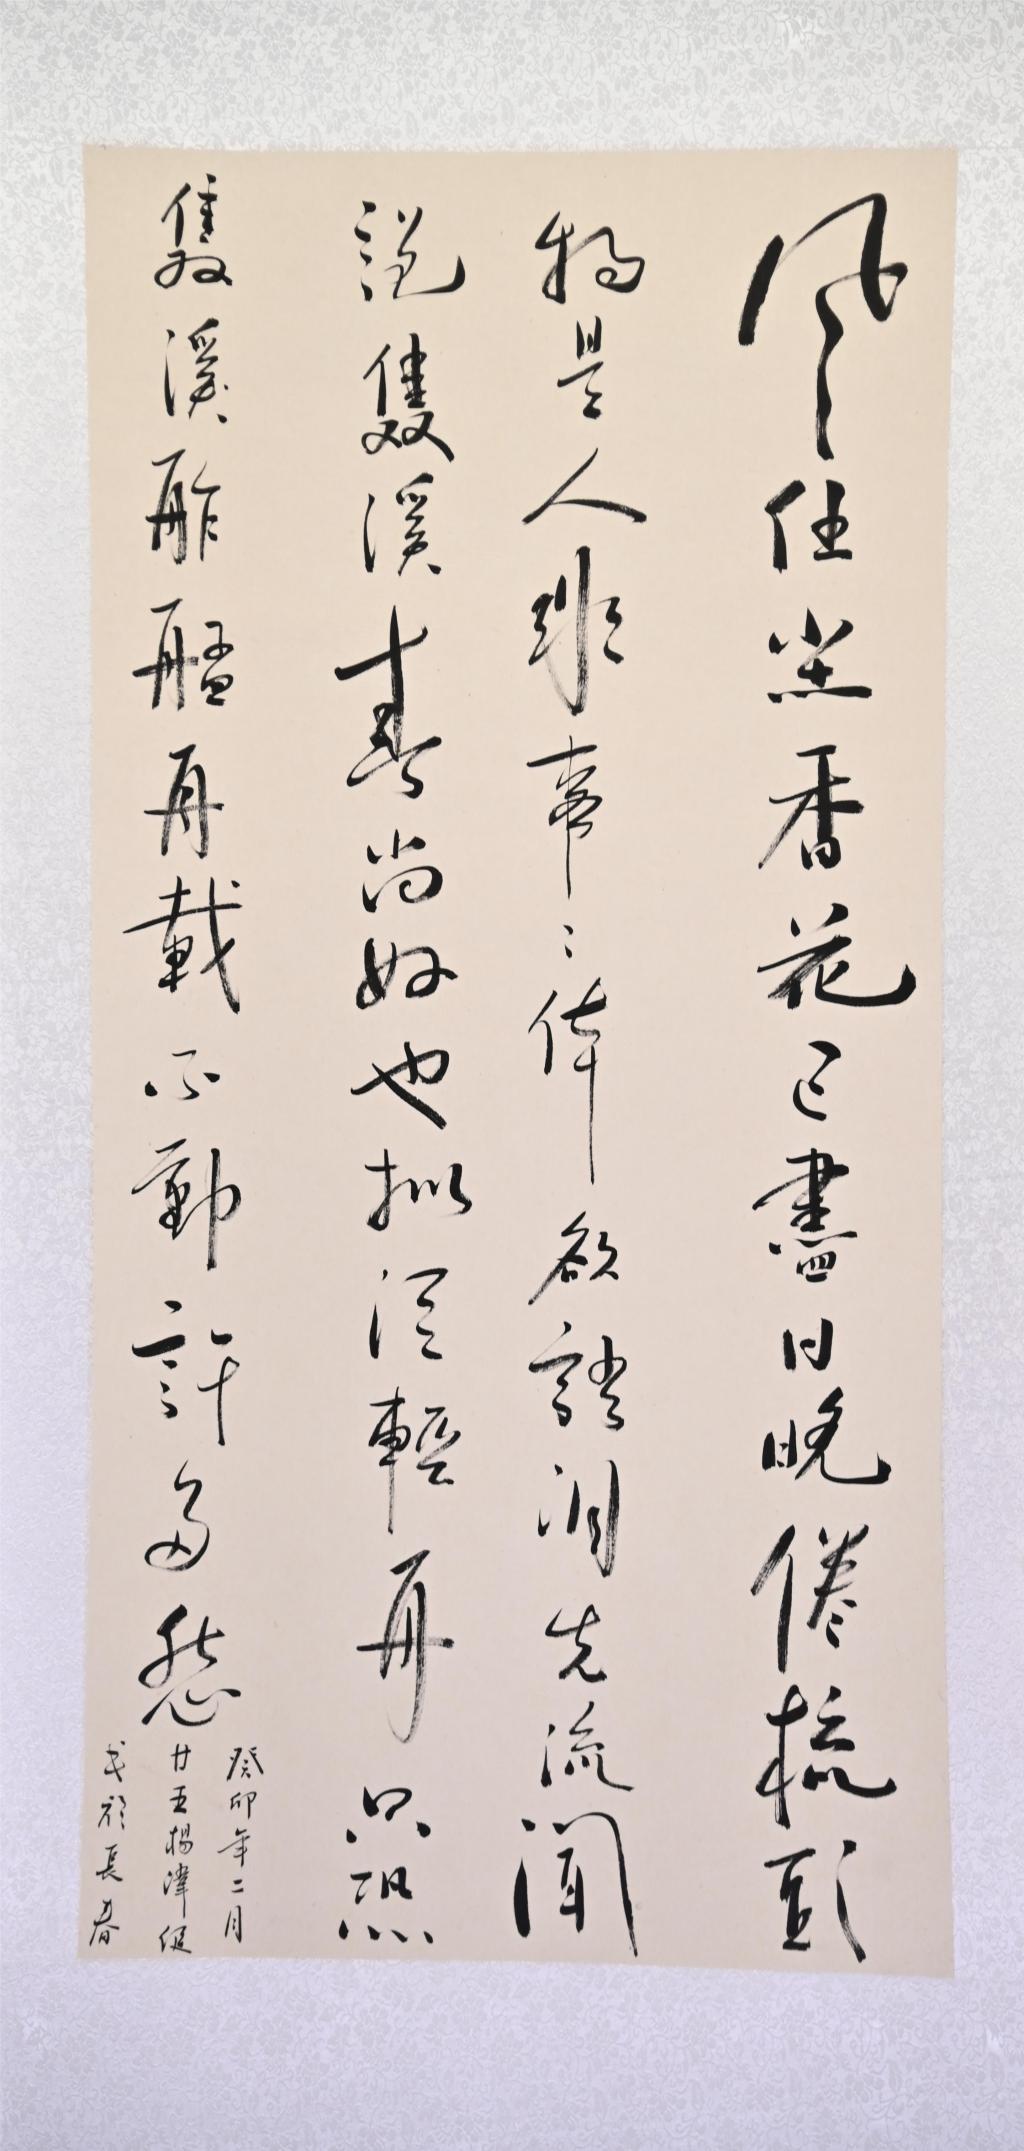 風住塵香花已盡日晚倦梳頭
物是人非事〻休欲語泪先流聞
說雙溪春尚好也擬泛輕舟只恐
雙溪舴艋舟載不動許多愁
癸卯年二月
廿五楊
於長春